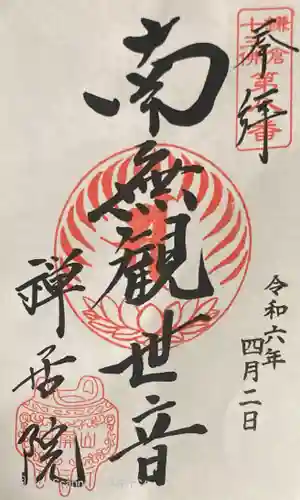 奉拝
鎌倉
十三佛
第八番
南無観世音
令和六年
四月二日
禅居院